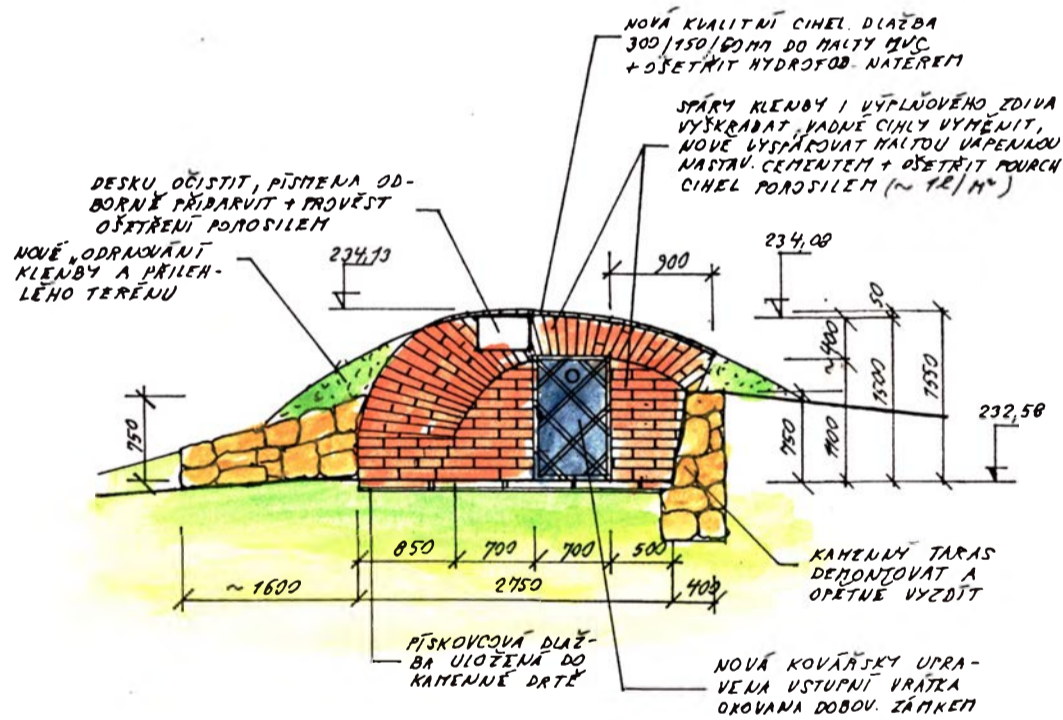 NOVÁ KVALITNÍ CIHEL. DLAŽBA
300/150/50MM DO MALTY MVC
+ OŠETŘIT HYDROFOB. NÁTĚREM
SPÁRY KLENBY I VÝPLŇOVÉHO ZDIVA
VYŠKRÁBAT, VADNÉ CIHLY VYMĚNIT,
NOVĚ VYSPÁROVAT MALTOU VÁPENNOU
NASTAV. CEMENTEM + OŠETŘIT POVRCH
CIHEL POROSILEM (~ 1l/m²)
DESKU OČISTIT, PÍSMENA OD-
BORNĚ PŘIBARVIT + PROVÉST
OŠETŘENÍ POROSILEM
NOVÉ ODRNOVÁNÍ
KLENBY A PŘILEH-
LÉHO TERÉNU
234,13
234,08
900
50
~400
1500
1550
1100
750
232,58
750
850
700
700
500
~1600
2750
400
KAMENNÝ TARAS
DEMONTOVAT A
OPĚTNĚ VYZDÍT
PÍSKOVCOVÁ DLAŽ-
BA ULOŽENÁ DO
KAMENNÉ DRTĚ
NOVÁ KOVÁŘSKY UPRA-
VENA VSTUPNÍ VRÁTKA
OKOVANA DOBOV. ZÁMKEM